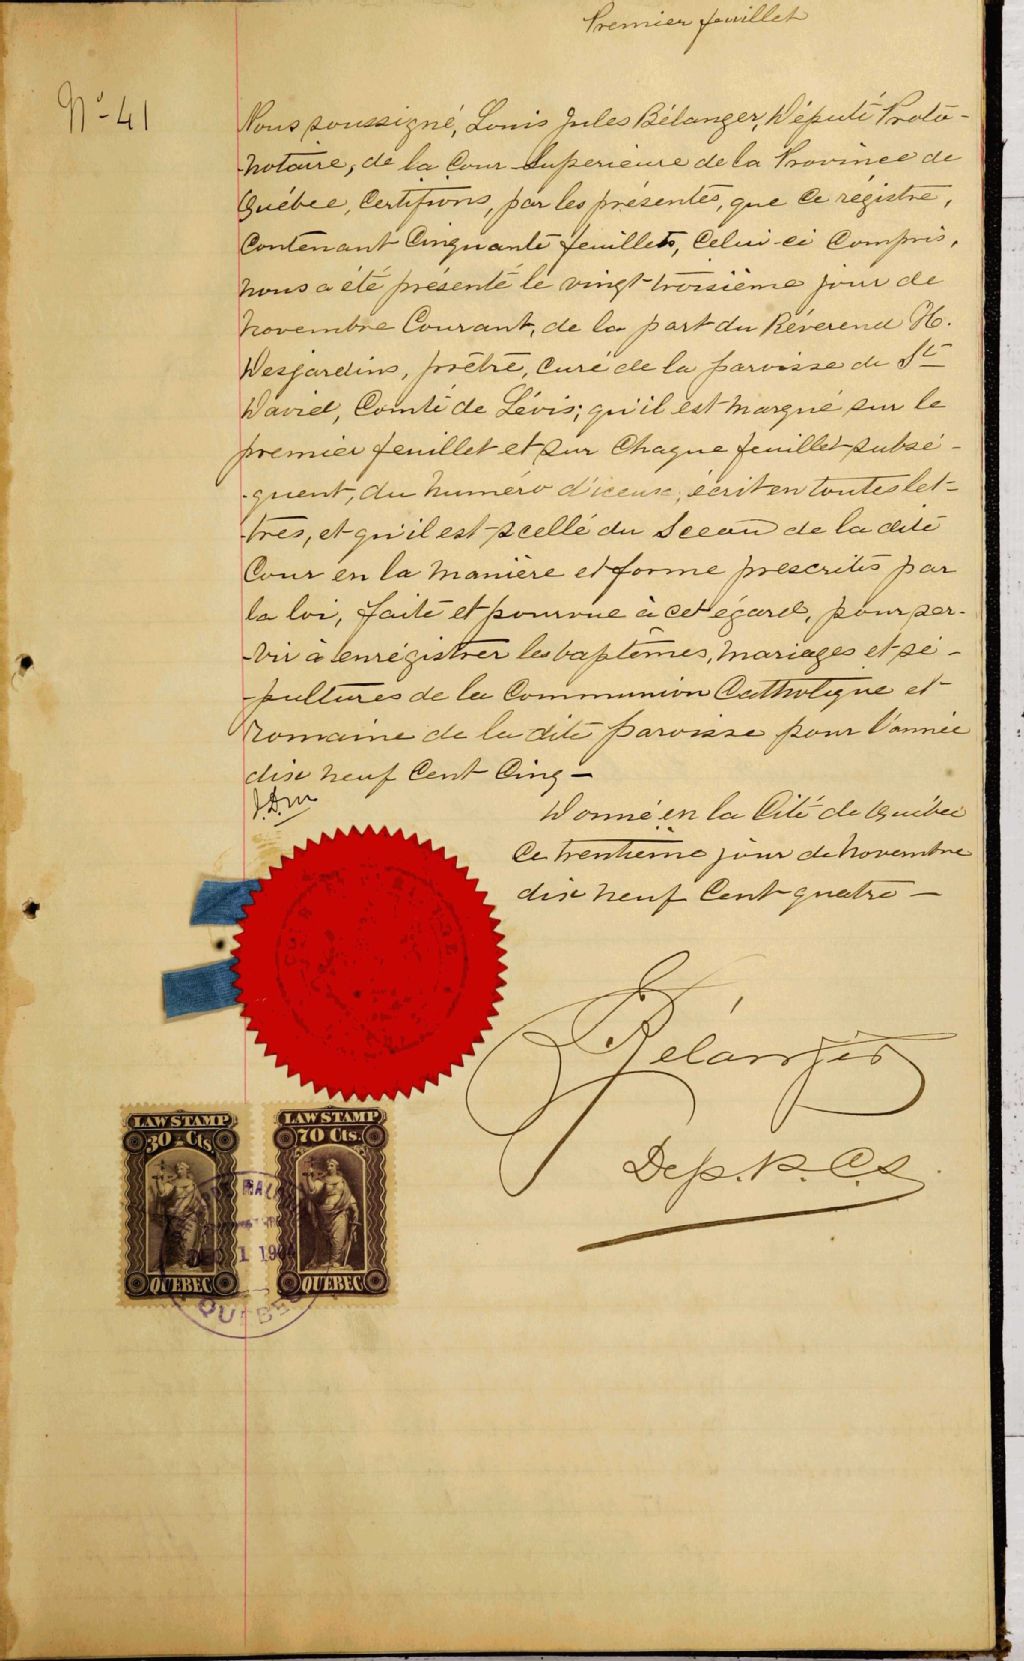 Premier feuillet
No - 41
Nous soussigné, Louis Jules Bélanger, Député Proto-
-notaire, de la Cour Superieure de la Province de
Québec, Certifions, par les présentes, que ce régistre,
Contenant Cinquante feuillets, Celui-ci Compris,
nous a été présenté le vingt-troisième jour de
novembre Courant, de la part du Réverend H.
Desjardins, prêtre, Curé de la paroisse de St
David, Comté de Lévis; qu'il est marqué sur le
premier feuillet et sur Chaque feuillet subsé-
-quent, du numéro d'iceux, écrit en toutes let-
-tres, et qu'il est scellé du Sceau de la dite
Cour en la manière et forme prescrites par
la loi, faite et pourvue à cet égard, pour ser-
-vir à enrégistrer les baptêmes, mariages et sé-
-pultures de la Communion Catholique et
romaine de la dite paroisse pour l'année
dix neuf Cent Cinq -
Donné en la Cité de Québec
Ce trentième jour de novembre
dix neuf Cent quatre -
Bélanger
Dep. P. C. S.
LAW STAMP
30 Cts
QUEBEC
LAW STAMP
70 Cts.
QUEBEC
DEC 1 1904
QUEBEC